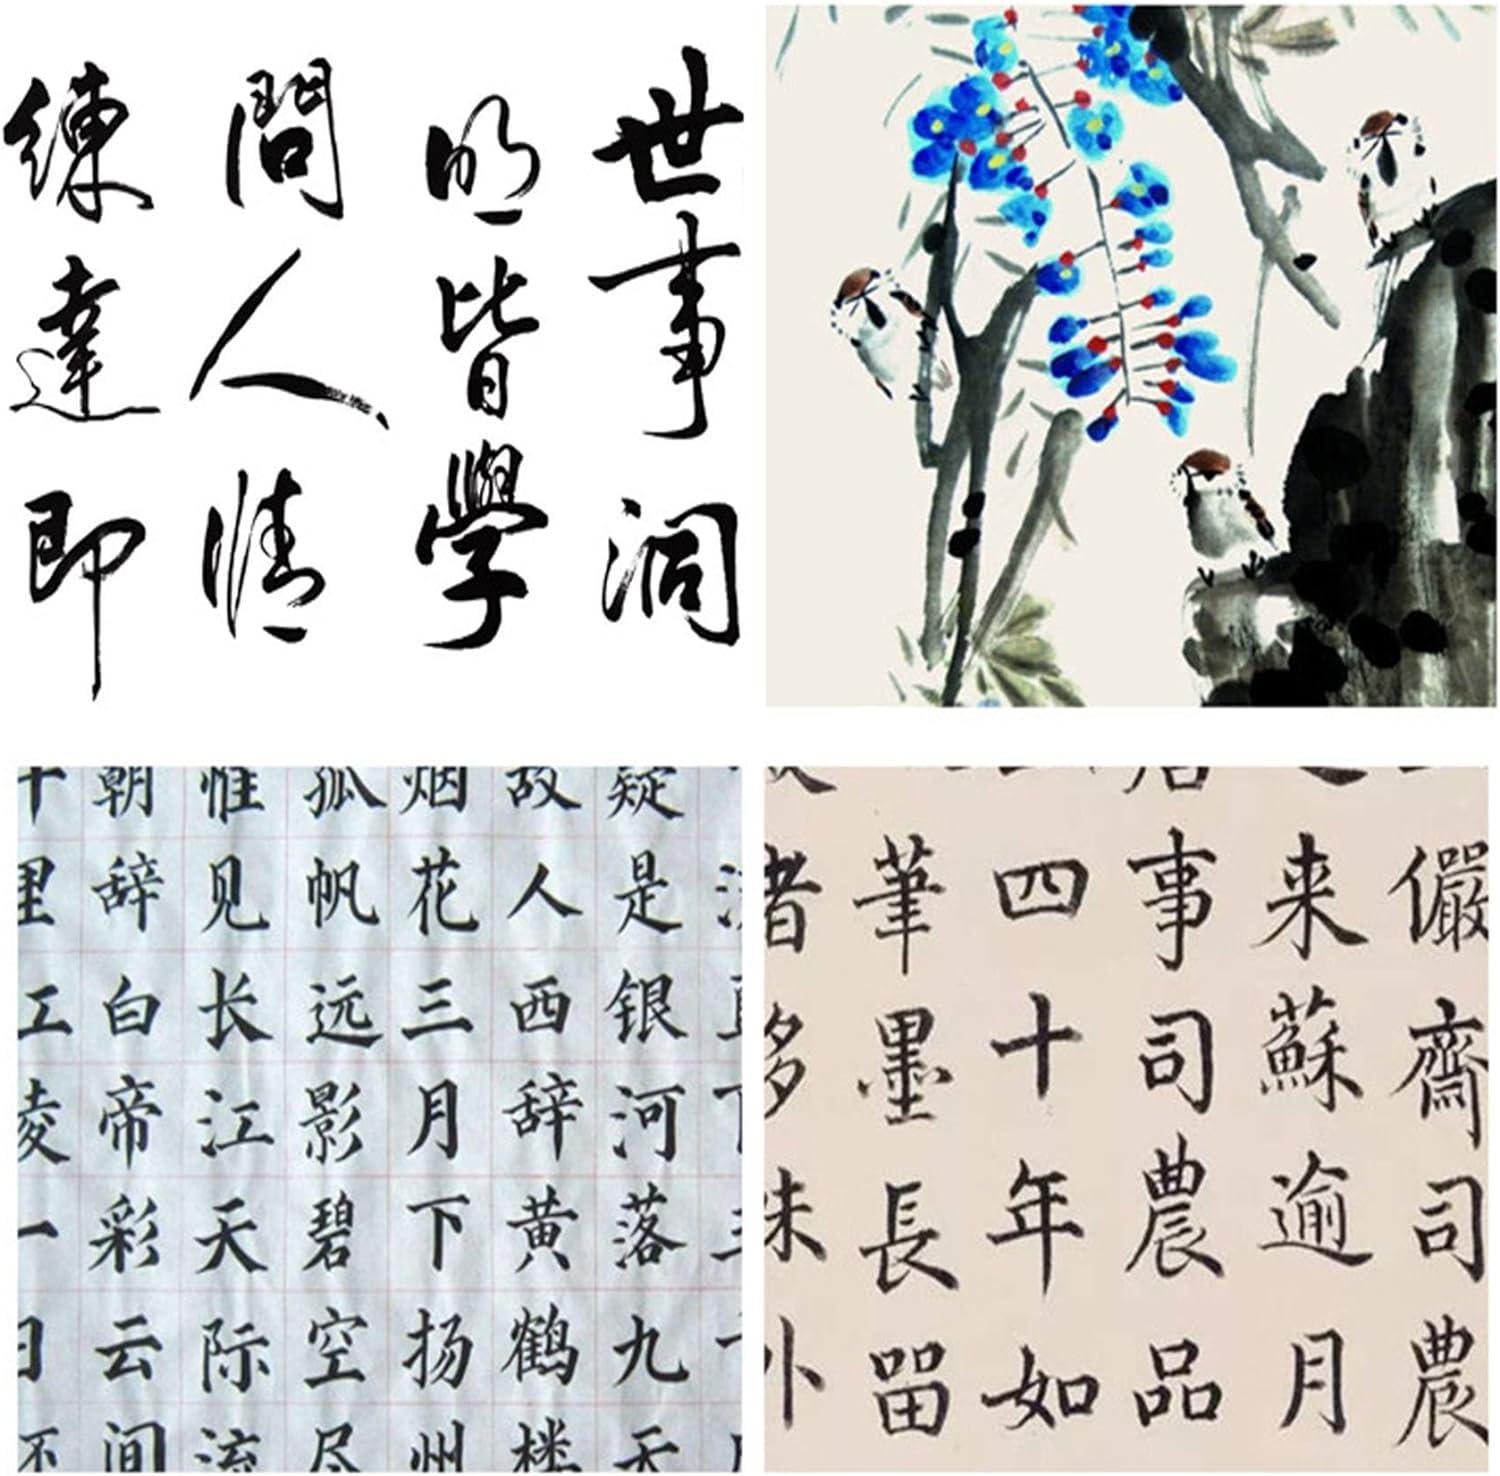 世事洞
明皆學
問人情
練達即
疑是银河落九天
故人西辞黄鹤楼
烟花三月下扬州
孤帆远影碧空尽
惟见长江天际流
朝辞白帝彩云间
千里江陵一日还
儼齋司農
来蘇逾月
事司農品
四十年如
筆墨長留